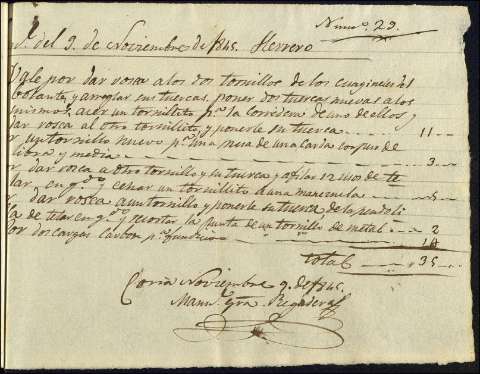 Numº. 29.
del 9. de Noviembre de 1845. Herrero
Vale por dar rosca a los dos tornillos de los
volante, y arreglar sus tuercas, poner dos tuercas nuevas a los
mismos, acer un tornillito pª la corredera de uno de ellos y
dar rosca al otro tornillito, y ponerle su tuerca 11
un tornillo nuevo pª una mesa de una
libra y media 3
dar rosca a otro tornillo y su tuerca y afilar 12 usos de te
lar en gº. y echar un tornillito a una manezuela 5
dar rosca a un tornillo y ponerle su tuerca de la pendoli
lla de telar en gº. y recortar la punta de un tornillo de metal 2
Por dos cargas carbon pª fundicion 14
total 35
Coria Noviembre 9. de 1845.
Manuel